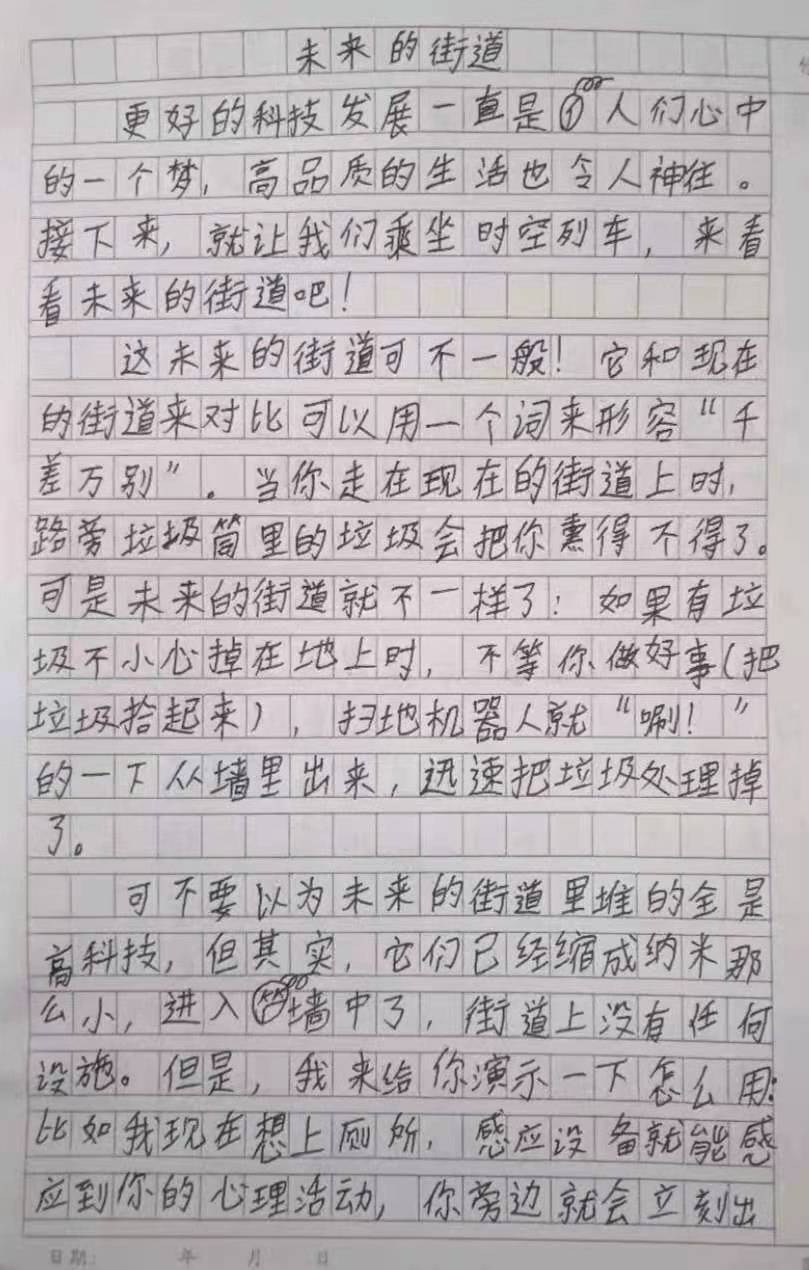 未来的街道
更好的科技发展一直是人们心中
的一个梦，高品质的生活也令人神往。
接下来，就让我们乘坐时空列车，来看
看未来的街道吧！
这未来的街道可不一般！它和现在
的街道来对比可以用一个词来形容“千
差万别”。当你走在现在的街道上时，
路旁垃圾筒里的垃圾会把你熏得不得了。
可是未来的街道就不一样了：如果有垃
圾不小心掉在地上时，不等你做好事（把
垃圾拾起来），扫地机器人就“唰！”
的一下从墙里出来，迅速把垃圾处理掉
了。
可不要以为未来的街道里堆的全是
高科技，但其实，它们已经缩成纳米那
么小，进入墙中了，街道上没有任何
设施。但是，我来给你演示一下怎么用：
比如我现在想上厕所，感应设备就能感
应到你的心理活动，你旁边就会立刻出
日期： 年 月 日